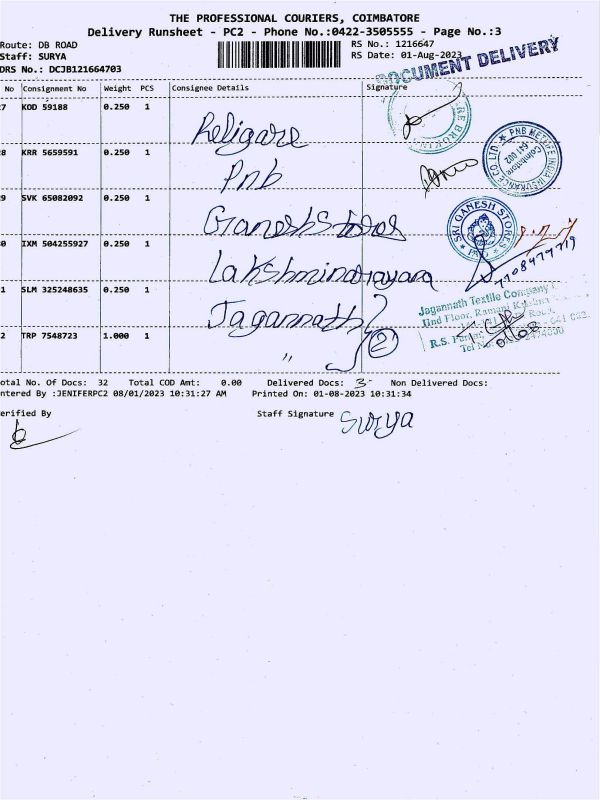 THE PROFESSIONAL COURIERS, COIMBATORE
Delivery Runsheet - PC2 - Phone No.:0422-3505555 - Page No.:3
Route: DB ROAD
RS No.: 1216647
Staff: SURYA
RS Date: 01-Aug-2023
DRS No.: DCJB121664703
DOCUMENT DELIVERY
No Consignment No Weight PCS Consignee Details Signature
7 KOD 59188 0.250 1 Religare
8 KRR 5659591 0.250 1 Pnb
PNB METLIFE INDIA INSURANCE CO LTD
Coimbatore
641 002
9 SVK 65082092 0.250 1 Ganesh Stores
SRI GANESH STORES
0 IXM 504255927 0.250 1 Lakshminarayana
7708477719
1 SLM 325248635 0.250 1 Jagannath
Jagannath Textile Company
IInd Floor, Ramani Krishna
2 TRP 7548723 1.000 1 "
2
R.S. Puram, 641 002.
Tel No:
otal No. Of Docs: 32 Total COD Amt: 0.00 Delivered Docs: 3 Non Delivered Docs:
ntered By :JENIFERPC2 08/01/2023 10:31:27 AM Printed On: 01-08-2023 10:31:34
erified By Staff Signature Surya